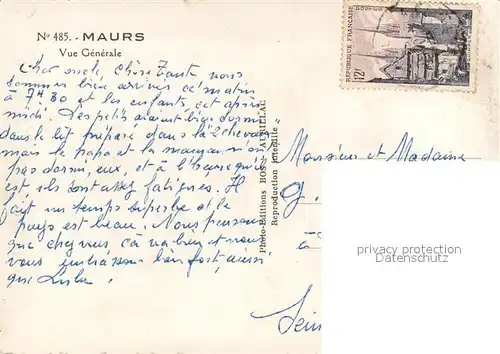 Nº 485. - MAURS
Vue Générale
Cher oncle, Chère Tante nous
sommes bien arrivés ce matin
à 7H30 et les enfants cet après
midi. Les petits avaient bien dormi
dans le lit préparé dans la 2 chevaux
mais le papa et la maman n'ont
pas dormi, eux, et à l'heure qu'il
est ils sont assez fatigués. Il
fait un temps superbe et le
pays est beau. Nous pensons
que chez vous ça va bien et nous
vous embrassons bien fort, aussi
que Lulu
Photo-Editions BOS - AURILLAC
Reproduction interdite
REPUBLIQUE FRANÇAISE
POSTES
12F
Monsieur et Madame
G.
à
privacy protection
Datenschutz
Sein